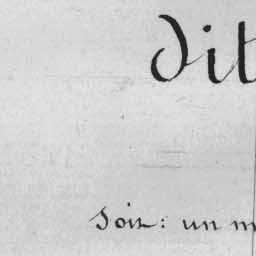 dit
soit: un m